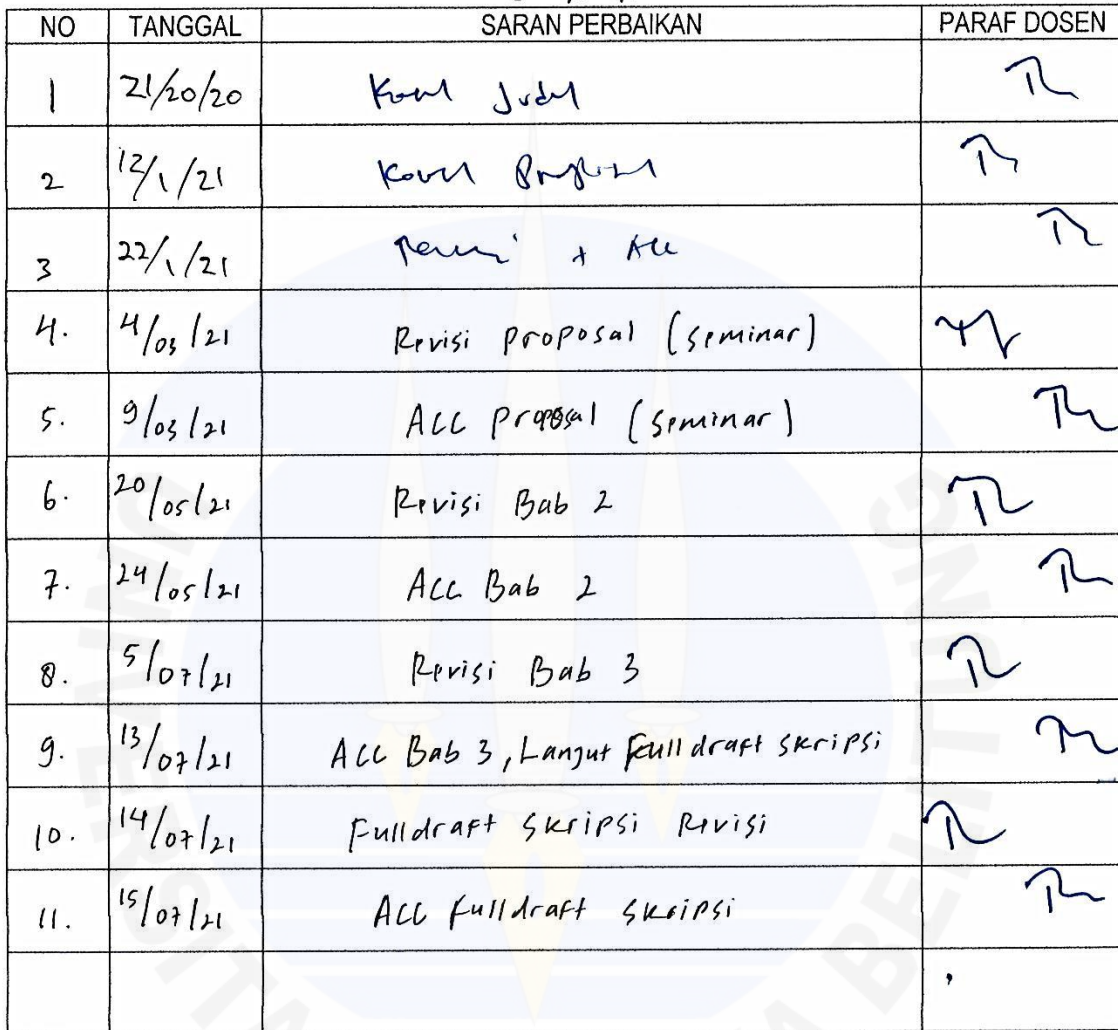 NO TANGGAL SARAN PERBAIKAN PARAF DOSEN
1 21/20/20
2 12/1/21
3 22/1/21 + Acc
4. 4/03/21 Revisi Proposal (seminar)
5. 9/03/21 ACC proposal (seminar)
6. 20/05/21 Revisi Bab 2
7. 24/05/21 ACC Bab 2
8. 5/07/21 Revisi Bab 3
9. 13/07/21 ACC Bab 3, Lanjut Full draft skripsi
10. 14/07/21 Fulldraft skripsi Revisi
11. 15/07/21 ACC fulldraft skripsi